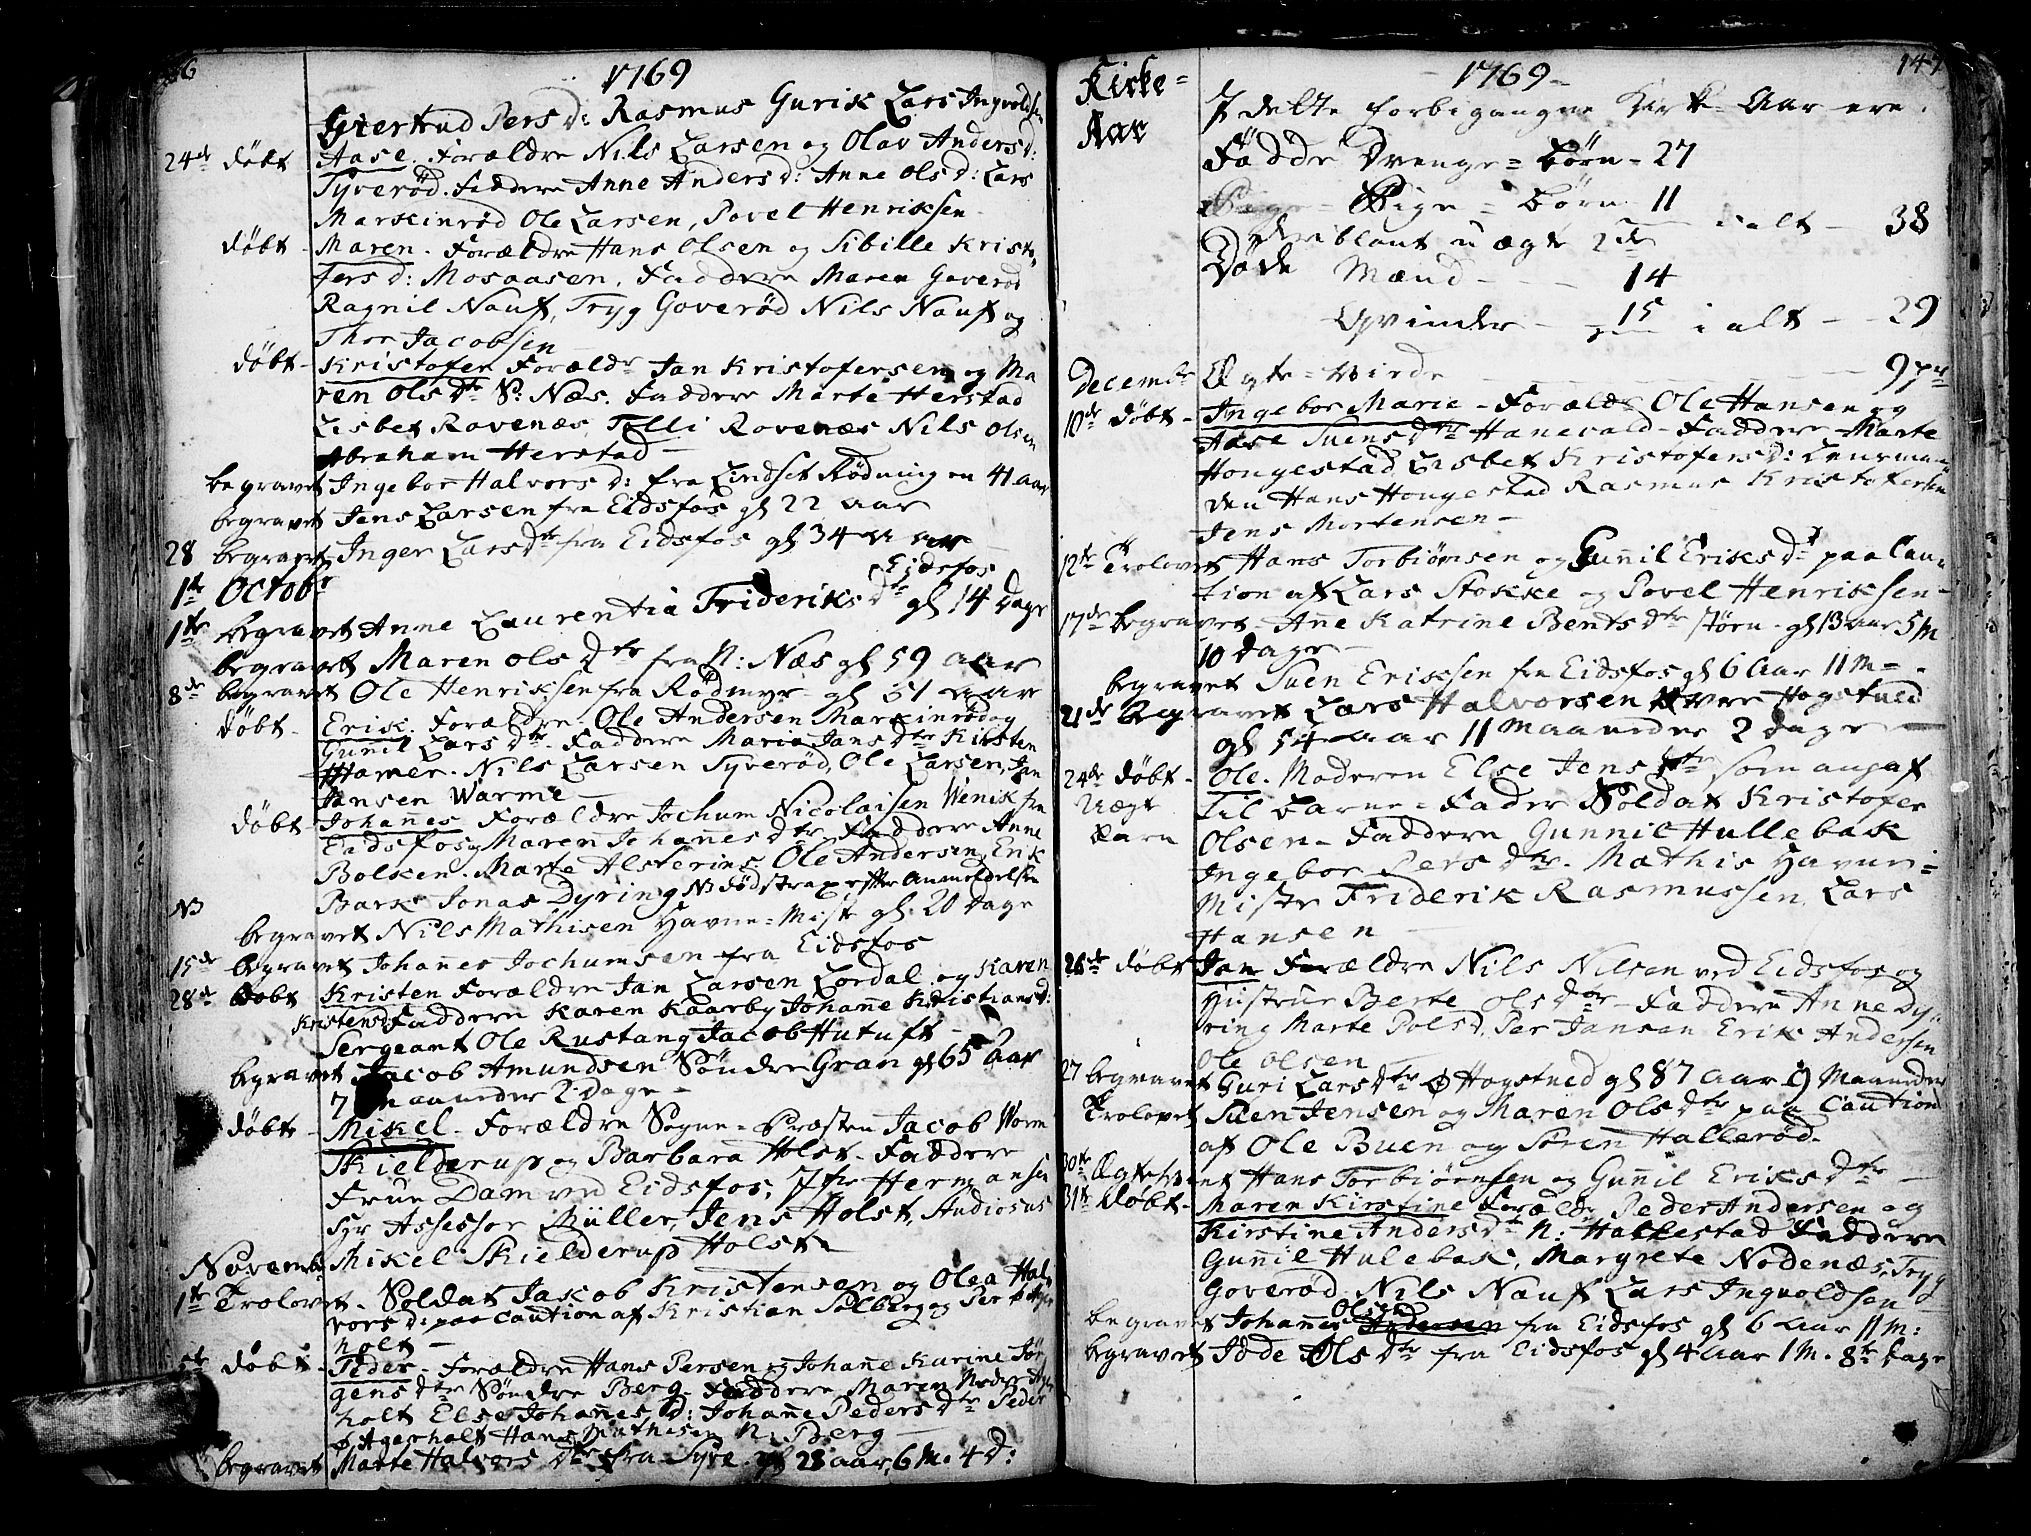 1769
Giertrud Pers D: Rasmus Gurik Lars Ingvoldsen
24de døbt Aase. Forældre Nils Larsen og Olav Anders d:
Syverød. Faddere Anne Anders d: Anne Ols d: Lars
Markinrød Ole Larsen, Povel Henriksen
døbt Maren. Forældre Hans Olsen og Sibille Kristo,
fers d: Mosaasen, Faddere Maren Goverød
Ragnil Nauf, Tryg Goverød Nils Nauf og
Thor Jacobsen
døbt Kristofer Foræld: Jan Kristofersen og Ma
ren Ols Dtr S: Næs. Faddere Marte Herstad
Lisbet Ravenæs, Tolli Ravenæs Nils Olsen
Abraham Herstad
begravet Ingebor Halvors d: fra Lindset Rødning en 41 aar
begravet Jens Larsen fra Eidsfos gl 22 aar
28 begravet Inger Lars Dtr fra Eidsfos gl 34 aar
1te Octobr Eidsfos
1te begravet Anne Laurentia Frideriks Dtr gl 14 Dage
begravet Maren Ols Dtr fra N: Næs gl 59 aar
8de begravet Ole Henriksen fra Rødmyr gl 51 aar
døbt Erik. Forældre Ole Andersen Markinrød og
Gunil Lars Dtr. Faddere Maria Jans Dtr Kirsten
Hamer. Nils Larsen Syverød, Ole Larsen, Jan
Jansen Warme
døbt Johañes Forældre Jochum Nicolaisen Wenik fra
Eidsfos og Maren Johañes Dtr Faddere Anne
Bolken. Marte Alsterins Ole Andersen, Erik
Bark Jonas Dyring NB
NB
begravet Nils Mathisen Havne=Mist gl. 20 Dage
15de begravet Johañes Jochumsen fra Eidsfos
28de døbt Kristen Forældre Jan Larsen Lordal og Karen
Kristensd Faddere Karen Kaarby Johañe Kristians d:
Sergeant Ole Rustang Jacob Hutuft
begravet Jacob Amundsen Søndre Gran gl 65 Aar
7 maaneder 2 Dage
døbt Mikel. Forældre Sogne=Præsten Jacob Worm
Skielderup og Barbara Holst. Faddere
Frue Dam ved Eidsfos, Jfr Hermansen
Hr Assessor Büller, Jens Holst, Studiosus
Mikel Skielderup Holst
Novemb:
1te Trolovet. Soldat Jacob Kristensen og Olea Hal,
vors d: paa Caution af Kristian Solberg og Per Ø Ager
holt
døbt Peder. Forældre Hans Persen og Johañe Karine Jør
gens Dtr Søndre Berg. Faddere Maren Nedre Ager
holt Else Johañes D: Johañe Peders Dtr Peder
Ø Agerholt Hans Mathisen N: Berg
begravet Marte Halvors Dtr fra Syve. gl 28 aar, 6 M. 4 D:
Kirke=
Aar
1769
147
I dette forbigangne Kirke Aar ere
Fødde Drenge=Børn - 27
Pige=Børn 11
ialt 38
deriblant uægte 2de
Døde Mænd - - - 14
Qvinder 15 ialt - 29
Decembr Ægte=viede 9 pr
10de døbt Ingebor Marie - Foræld: Ole Hansen og
Aase Suens Dtr Hanevald - Faddere Marte
Hougestad Lisbet Kristofers d: Lensman
den Hans Hougestad Rasmus Kristofersen
Jens Mortensen
12te Trolovet Hans Torbiørnsen og Guñil Eriks Dtr paa Cau
tion af Lars Stokke og Povel Henriksen
17de begravet Añe Katrine Bents Dtr Størn. gl 13 aar 5 M
10 Dage
begravet Suen Eriksen fra Eidsfos gl 6 Aar 11 M
21de begravet Lars Halvorsen Øvre Hogstued
gl 54 aar 11 Maaneder 2 Dage
24de døbt Ole. Moderen Else Jens Dtr som angaf
Uægt til Barne=Fader Soldat Kristofer
Barn Olsen - Faddere Gunnil Hullebak
Ingebor Pers Dtr. Mathis Havne=
Mister Friderik Rasmussen, Lars
Hansen
26de døbt Jan Forældre Nils Nilsen ved Eidsfos og
Hustrue Berte Ols Dtr Faddere Anne Dy,
ring Marte Pols D, Per Jansen Erik Andersen
Ole Olsen
27 begravet Guri Lars Dtr Ø Hogstued gl 87 aar 9 Maaneder
Trolovet Suen Jensen og Maren Ols Dtr paa Caution
af Ole Buen og Søren Hallerød.
30te Ægteviet Hans Torbiørnsen og Guñil Eriks Dtr
31te Døbt Maren Kirstine Foræld: Peder Andersen og
Kirstine Anders Dtr N: Hallestad Faddere
Guñil Hulebak, Margrete Nodenæs, Tryg
Goverød, Nils Nauf Lars Ingvoldsen
Olsen
begravet Johañes Andersen fra Eidsfos gl 6 aar 11 M:
begravet Jøde Ols Dtr fra Eidsfos gl 4 Aar 1 M. 8te Dage